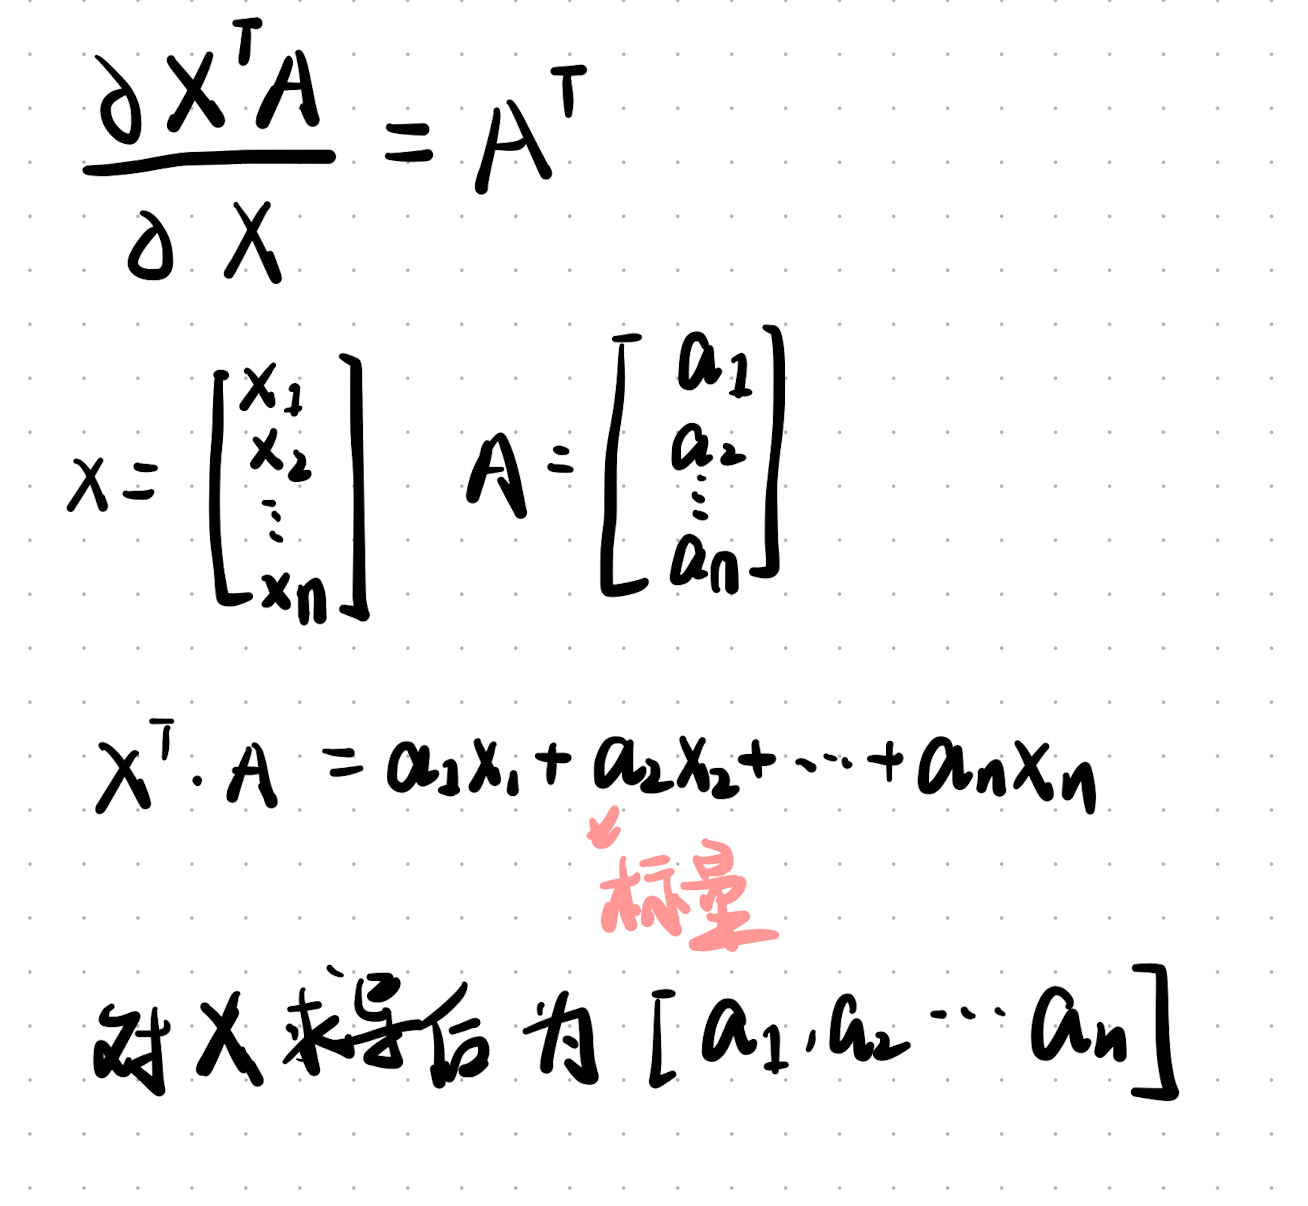 ∂X^T A / ∂X = A^T
x = [x1 x2 ⋮ xn] A = [a1 a2 ⋮ an]
X^T · A = a1x1 + a2x2 + ⋯ + anxn
标量
对 X 求导后为 [a1, a2 ⋯ an]